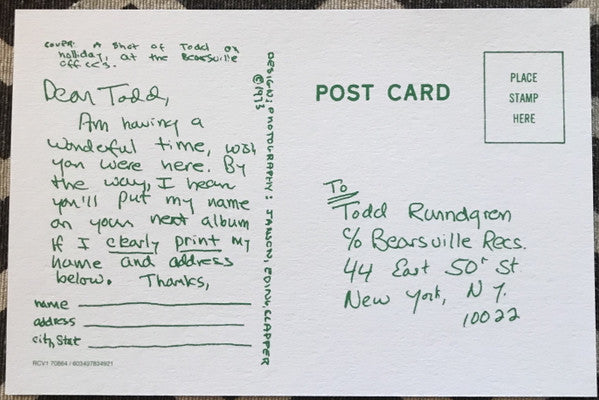 COVER: A Shot of Todd on
holliday, at the Bearsville
offices.
Dear Todd,
Am having a
wonderful time, wish
you were here. By
the way, I hear
you'll put my name
on your next album
if I clearly print my
name and address
below. Thanks,
name
address
city, Stat
RCV1 70864 / 603497834921
DESIGN; PHOTOGRAPHY: JANSON, EDINK, CLAPPER
©1973
POST CARD
PLACE
STAMP
HERE
To
Todd Rundgren
c/o Bearsville Recs.
44 East 50th St.
New York, N.Y.
10022